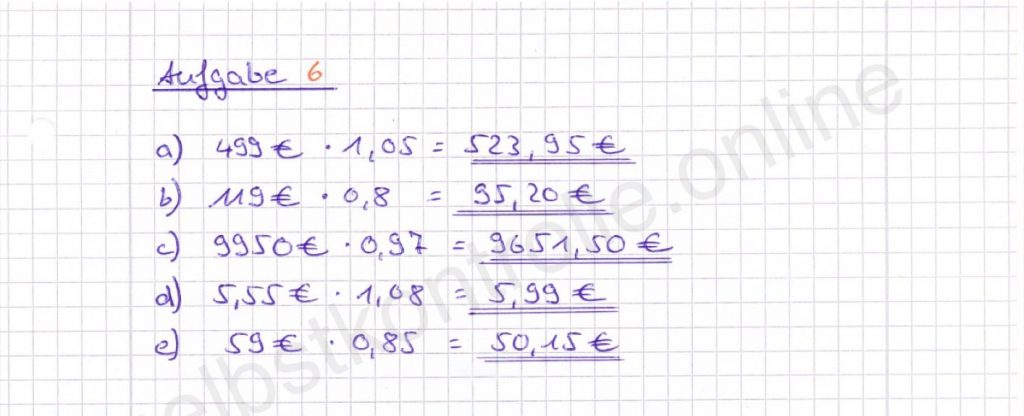 Aufgabe 6
a) 499 € · 1,05 = 523,95 €
b) 119 € · 0,8 = 95,20 €
c) 9950 € · 0,97 = 9651,50 €
d) 5,55 € · 1,08 = 5,99 €
e) 59 € · 0,85 = 50,15 €
selbstkontrolle.online